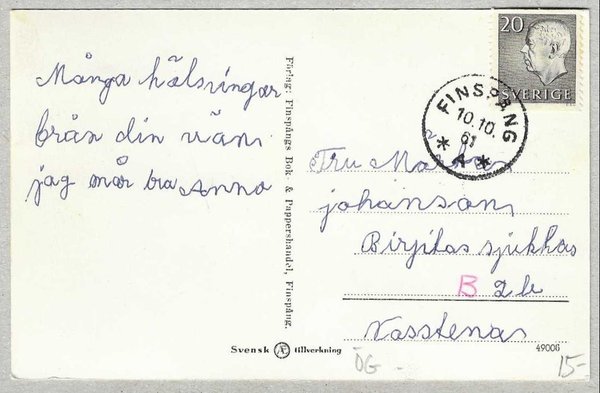 Många hälsningar
från din vän
jag mår bra Anna
Förlag: Finspångs Bok & Pappershandel, Finspång.
20
SVERIGE
FINSPÅNG
10.10.
61
* A *
Fru
johanson
Birjitas sjukhas
B 2b
Vasstenas
Svensk A tillverkning
49006
ÖG -
15-